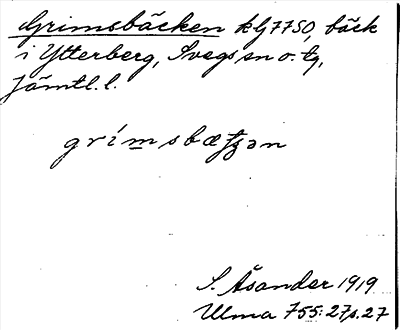 Grimsbäcken kG7750, bäck
i Ytterberg, Svegs sn o. tg,
Jämtl. l.
S. Åsander 1919
Ulma 755:27 s. 27